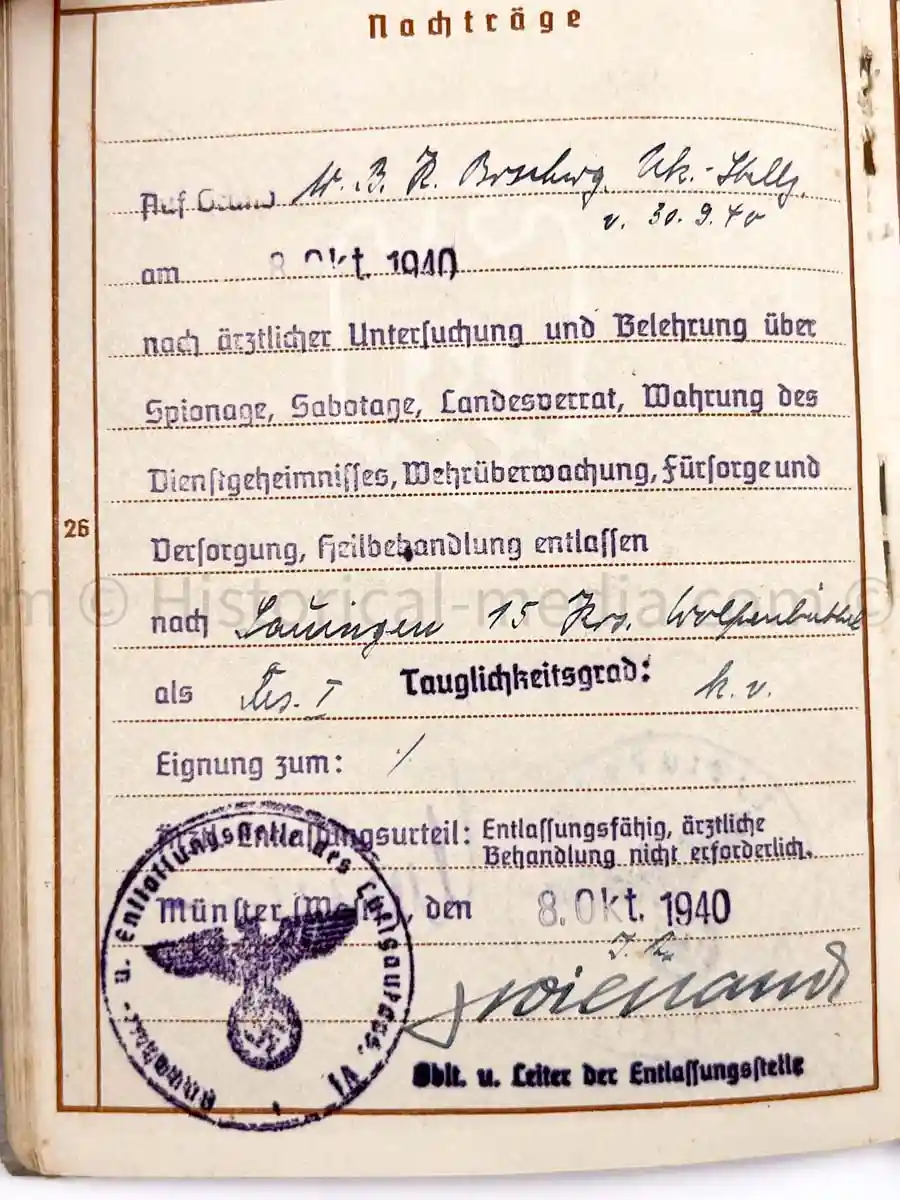 Nachträge
Auf Grund W. B. K. Uk.-Stellg.
v. 30. 9. 40
am 8. Okt. 1940
nach ärztlicher Untersuchung und Belehrung über
Spionage, Sabotage, Landesverrat, Wahrung des
Dienstgeheimnisses, Wehrüberwachung, Fürsorge und
Versorgung, Heilbehandlung entlassen
26
© Historical-media.com ©
nach Lauingen 15 Krs. Wolfenbüttel
als Res. I Tauglichkeitsgrad: k. v.
Eignung zum: /
Entlassungsurteil: Entlassungsfähig, ärztliche
Behandlung nicht erforderlich.
Münster (Westf.), den 8. Okt. 1940
Wienand
Oblt. u. Leiter der Entlassungsstelle
Annahme- u. Entlassungsstelle des Luftgaues VI